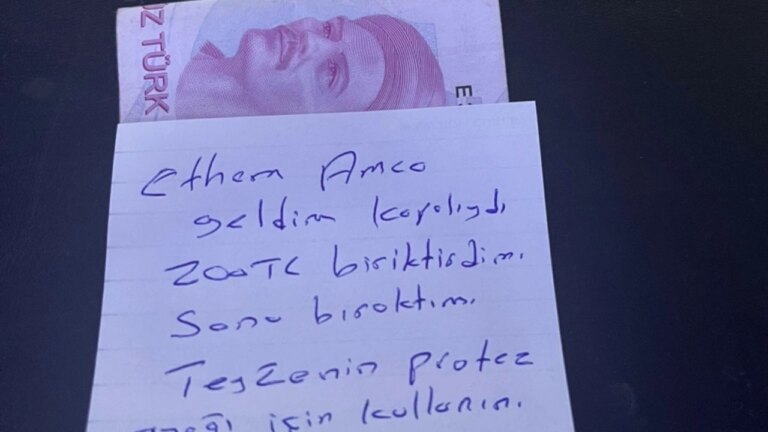 Z TÜRK
E
Ethem Amca
geldim kapalıydı
200TL biriktirdim.
Sana bıraktım.
Teyzenin protez
için kullanın.